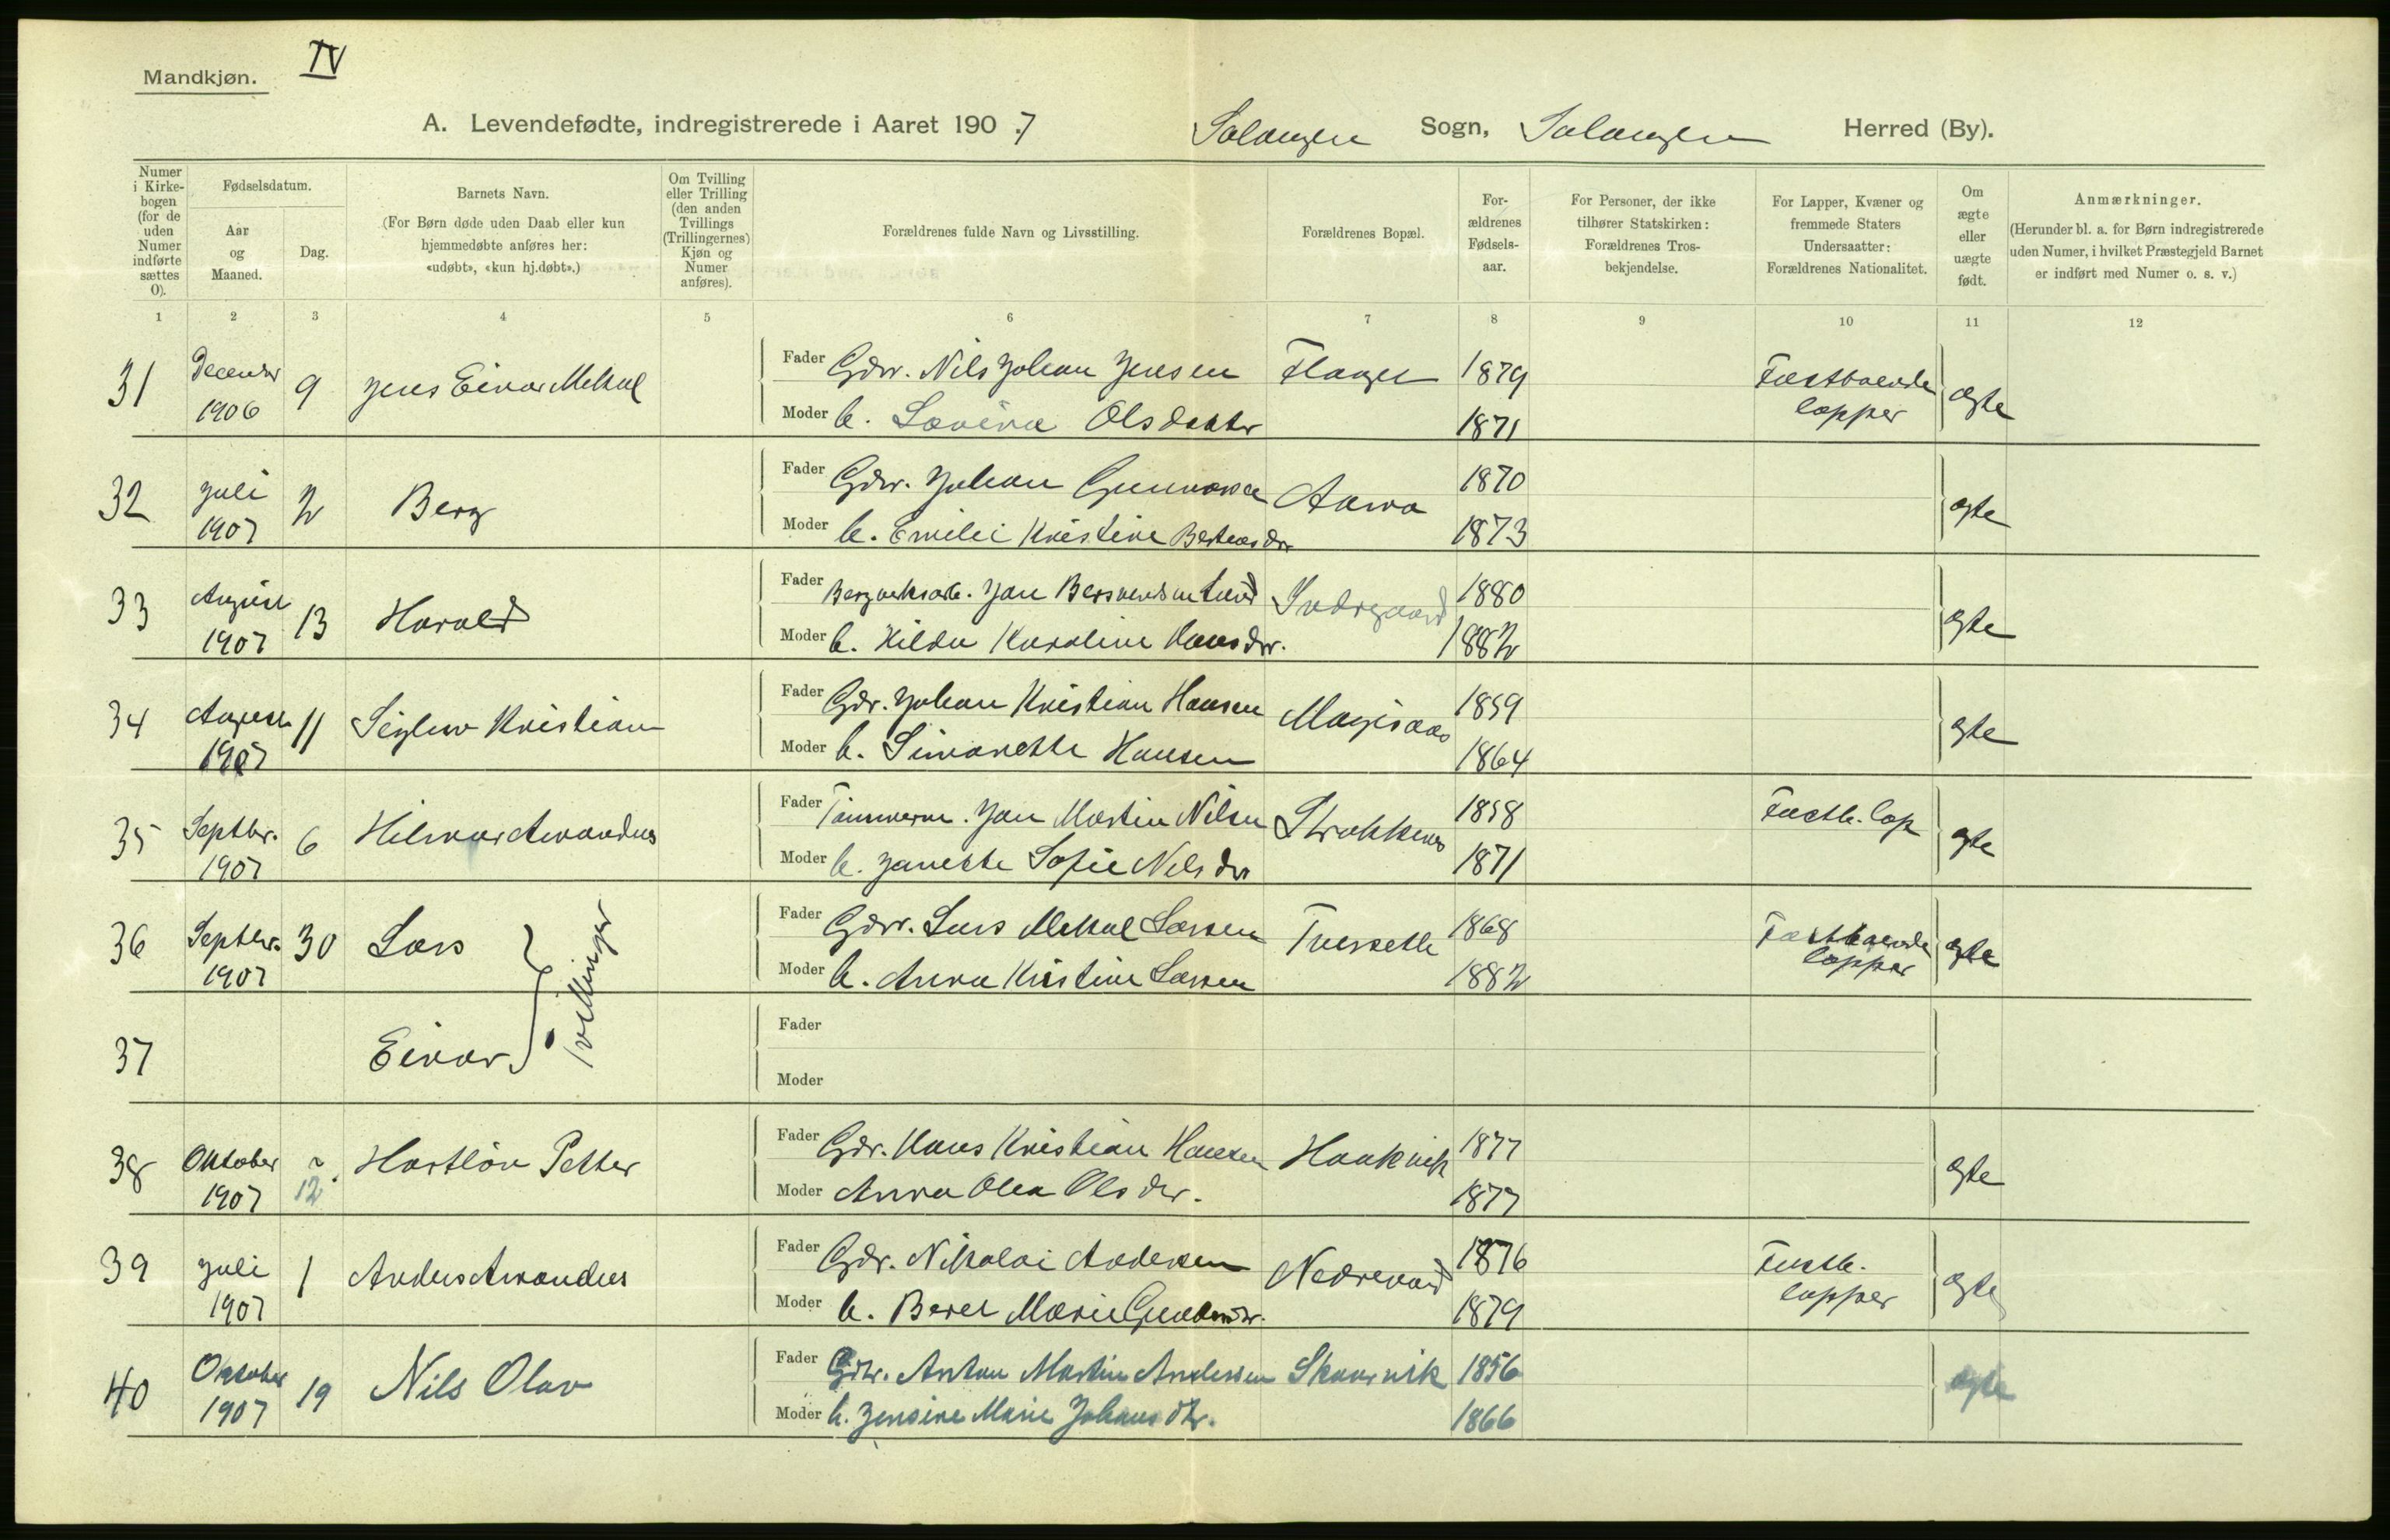 Mandkjøn.
IV
A. Levendefødte, indregistrerede i Aaret 1907 Salangen Sogn, Salangen Herred (By).
Numer i Kirkebogen (for de uden Numer indførte sættes 0).
Fødselsdatum.
Aar og Maaned.
Dag.
Barnets Navn.
(For Børn døde uden Daab eller kun hjemmedøbte anføres her: «udøbt», «kun hj.døbt».)
Om Tvilling eller Trilling (den anden Tvillings (Trillingernes) Kjøn og Numer anføres).
Forældrenes fulde Navn og Livsstilling.
Forældrenes Bopæl.
Forældrenes Fødselsaar.
For Personer, der ikke tilhører Statskirken: Forældrenes Trosbekjendelse.
For Lapper, Kvæner og fremmede Staters Undersaatter: Forældrenes Nationalitet.
Om ægte eller uægte født.
Anmærkninger.
(Herunder bl. a. for Børn indregistrerede uden Numer, i hvilket Præstegjeld Barnet er indført med Numer o. s. v.)
1 2 3 4 5 6 7 8 9 10 11 12
31 December 9 Jens Einar Mikal Fader Gdr. Nils Johan Jensen 1879 Fastboende ægte
1906 Moder h. Lovina Olsdatter 1871 lapper
32 Juli 2 Berg Fader Gdr. Johan 1870 ægte
1907 Moder h. Emilie Kristine 1873
33 August 13 Harald Fader Jan Lund Indregaard 1880 ægte
1907 Moder h. Hilda Karoline Hansdtr. 1882
34 August 11 Kristian Fader Gdr. Johan Kristian Hansen 1859 ægte
1907 Moder h. Simonette Hansen 1864
35 Septbr. 6 Hilmar Amandus Fader Jan Martin Nilsen Strokkenes 1858 Fastb. lap ægte
1907 Moder h. Janette Sofie Nilsdtr 1871
36 Septbr. 30 Lars Fader Gdr. Lars Mikal Larsen 1868 Fastboende ægte
1907 Moder h. Anna Kristine Larsen 1882 lapper
tvillinger
37 Einar Fader
Moder
38 Oktober 12 Hartløv Petter Fader Gdr. Hans Kristian Hansen 1877 ægte
1907 Moder Anna Olea Olsdtr. 1877
39 Juli 1 Anders Amandus Fader Gdr. Nikolai Andersen Nedrevand 1876 Fastb. ægte
1907 Moder h. Beret Marie 1879 lapper
40 Oktober 19 Nils Olav Fader Gdr. Anton Martin Andersen Skaarvik 1856 ægte
1907 Moder h. Jensine Marie Johansdtr. 1866